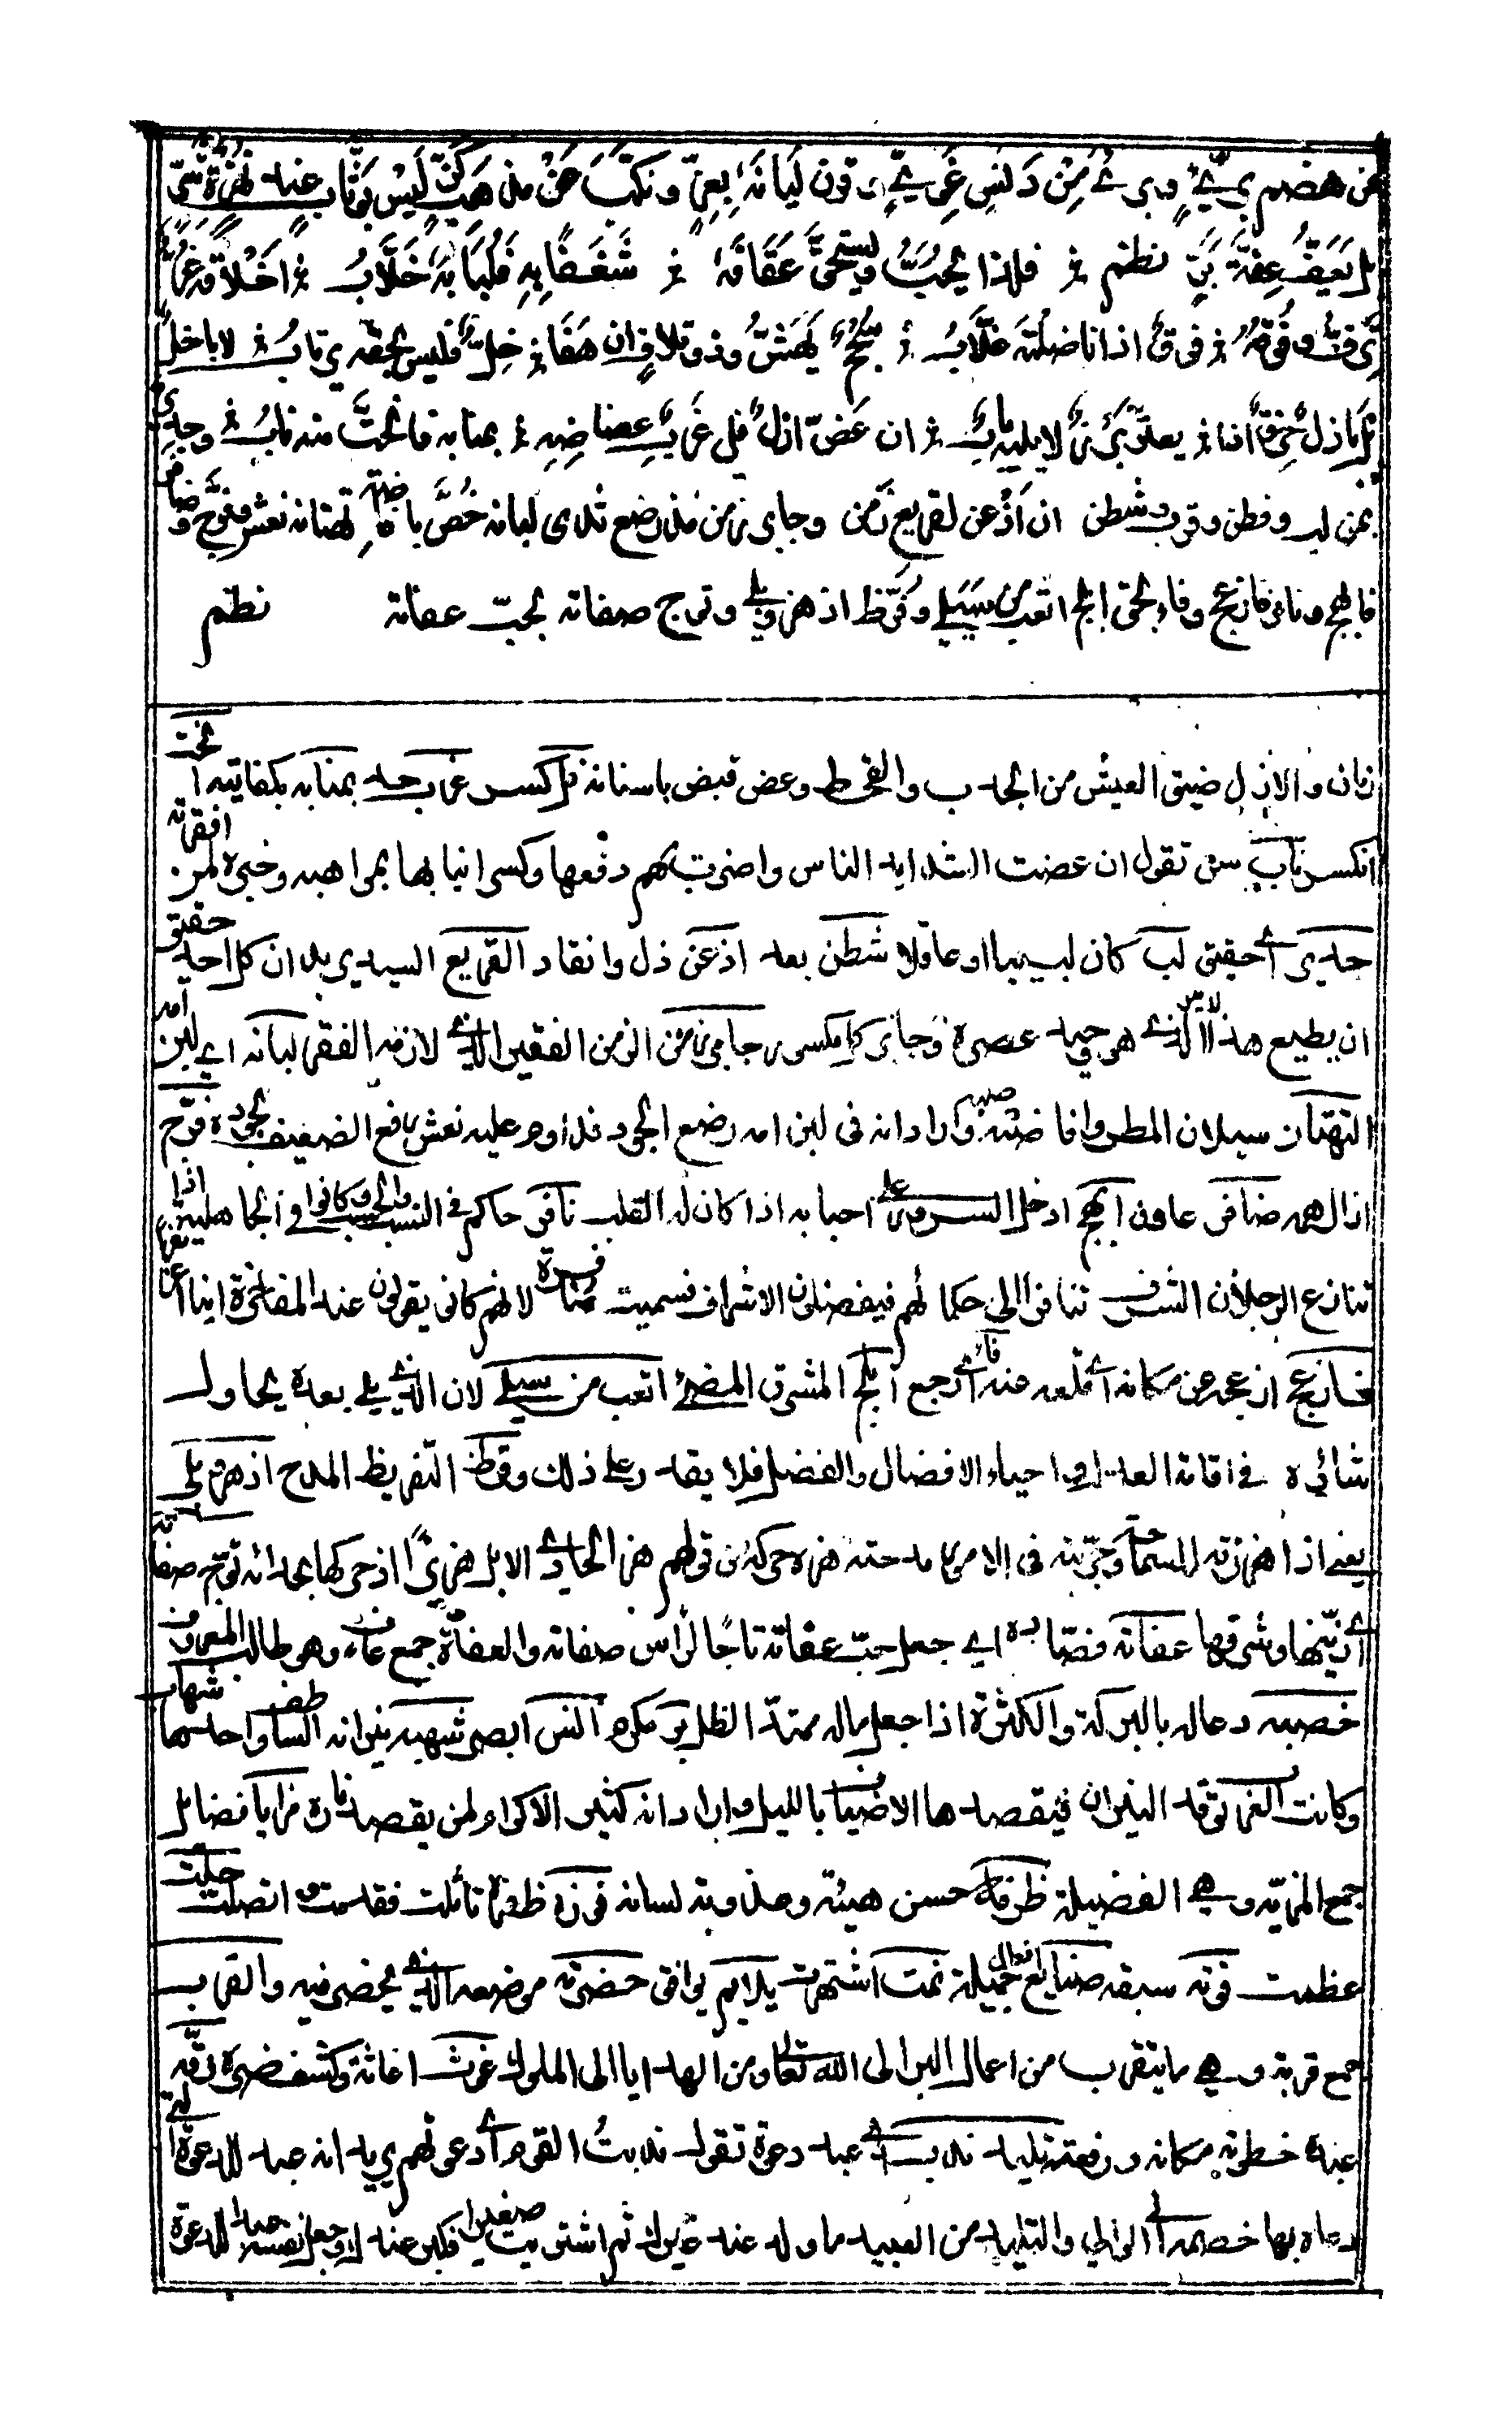 من هضم بريء وبرئ من دنس غوي وقرن ليانه بعز ونكب عن مذهب كز ليس بوثاب عند نهزة شر
بل يعف عفة بر نظم فلذا يحب ويستحق عفافه شغفا به فلبابه خلاب اخلاقه غر
ترف وفوقه فوق اذا ناضلته غلاب سجح يهش وذو تلاف ان هفا خل فليس بحقه يرتاب لا باخل
بل باذل خرق اذا يعتر برز لا يليه باب ان عض ازل فل غرب عضاضه بمنابه فانحت منه ناب وجدير
بمن لب وفطن وقرب وشطن ان اذعن لقريع زمن وجابر زمن مذ رضع ثدي لبانه خص بافاضة تهتانه نعش وفرج وضافر
فابهج ونافر فازعج وفاء بحق ابلج اتعب من سيلي وقرظ اذ هز وبلي وتوج صفاته بحب عفاته نظم
زمان والازل ضيق العيش من الجدب والقحط وعض قبض باسنانه فل كسر غرب حد بمنابه بكفايته انحت
انكسر ناب سن تقول ان عضت الشدايد الناس واضرت بهم دفعها وكسر انيابها بمواهبه وخبره لمن افقرته
جدير اي حقيق لب كان لبيبا او عاقلا شطن بعد اذعن ذل وانقاد القريع السيد يريد ان كل احد حقيق
ان يطيع هذا الامير الذي هو وحيد عصره وجابر كل مكسور جابر زمن الزمن الفقير الذي لازمه الفقر لبانه اي لبن امه
التهتان سيلان المطر وافاضته صبه واراد انه في لبن امه رضع الجود فداوم عليه نعش رافع الضعيف بجوده فرج
ازال همه ضافر عاون ابهج ادخل السرور على احبابه اذا كان له القلب نافر حاكم في النسب والحسب وكانوا في الجاهلية اذا
تنازع الرجلان الشرف تنافرا الى حكما لهم فيفضلون الاشراف فسميت منافرة لانهم كانوا يقولون عند المفاخرة اينا اعز نفرا
فازعج ازعجه عن مكانه اي قلعه عنه فاء اي رجع ابلج المشرق المضئ اتعب من سيلي لان الذي يلي بعده يحاول
اثاره في اقامة العدل واحياء الافضال والفضل فلا يقدر على ذلك وقرظ التقريظ المدح اذ هز وبلي
يعني اذا هززته للسماحة وجربته في الامر مدحته هزه حركه من قولهم هز الحادي الابل هزيزا اذ حركها بحدائه توج صفاته
اي زينها وشرفها عفاته قصاده اي جعل حب عفاته تاجا لرأس صفاته والعفاة جمع عاف وهو طالب المعروف
خصبه دعا له بالبركة والكثرة اذا جعل ماله ممتد الظل آنس ابصر شهبه نيرانه الساواحدها شهاب
وكانت العرب توقد النيران فيقصدها الاضياف بالليل واراد انه كثير الاكرام لمن يقصد داره مزايا فضايل
جمع المزية وهي الفضيلة ظرفه حسن هيئته وعذوبة لسانه تاثلت فقدمت واتصلت جلت
عظمت فوته سبقه صنايع افعال جميلة نمت اشتهرت يلايم يوافق حضرته موضعه الذي يحضر فيه والقرب
جمع قربة وهي ما يتقرب من اعمال البر الى الله تعالى ومن الهدايا الى الملوك غوث اغاثة وكشف ضره رقه
عنده خطوته مكانه ورفعته تليد ندب اي عبد دعوة تقول ندبت القوم اي دعوتهم يريد انه عبد للدعوة التي
دعاه بها خصمه الى الوالي والتليد من العبيد ما ولد عند غيرك ثم اشتريته صغيرا فكبر عندك وجعل نفسه عبدا للدعوة